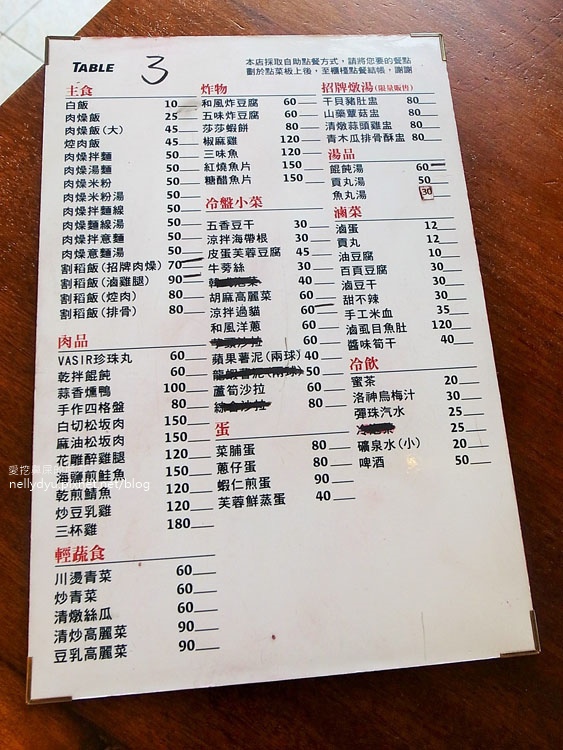 TABLE 3
本店採取自助點餐方式，請將您要的餐點
劃於點菜板上後，至櫃檯點餐結帳，謝謝
主食
白飯 10
肉燥飯 25
肉燥飯(大) 45
焢肉飯 45
肉燥拌麵 50
肉燥湯麵 50
肉燥米粉 50
肉燥米粉湯 50
肉燥拌麵線 50
肉燥麵線湯 50
肉燥拌意麵 50
肉燥意麵湯 50
割稻飯(招牌肉燥) 70
割稻飯(滷雞腿) 90
割稻飯(焢肉) 80
割稻飯(排骨) 80
肉品
VASIR珍珠丸 60
乾拌餛飩 60
蒜香燻鴨 100
手作四格盤 80
白切松坂肉 150
麻油松坂肉 150
花雕醉雞腿 120
海鹽煎鮭魚 150
乾煎鯖魚 120
炒豆乳雞 120
三杯雞 180
輕蔬食
川燙青菜 60
炒青菜 60
清燉絲瓜 60
清炒高麗菜 90
豆乳高麗菜 90
炸物
和風炸豆腐 60
五味炸豆腐 60
莎莎蝦餅 80
椒麻雞 120
三味魚 120
紅燒魚片 150
糖醋魚片 150
冷盤小菜
五香豆干 30
涼拌海帶根 30
皮蛋芙蓉豆腐 45
牛蒡絲 30
40
胡麻高麗菜 60
涼拌過貓 60
和風洋蔥 60
60
蘋果薯泥(兩球) 40
龍蝦薯泥(兩球) 50
蘆筍沙拉 60
綜合沙拉 80
蛋
菜脯蛋 80
蔥仔蛋 80
蝦仁煎蛋 90
芙蓉鮮蒸蛋 40
招牌燉湯(限量販售)
干貝豬肚盅 80
山藥蕈菇盅 80
清燉蒜頭雞盅 80
青木瓜排骨酥盅 80
湯品
餛飩湯 60
貢丸湯 50
魚丸湯 30
滷菜
滷蛋 12
貢丸 12
油豆腐 10
百頁豆腐 30
滷豆干 10
甜不辣 30
手工米血 35
滷虱目魚肚 120
醬味筍干 40
冷飲
蜜茶 20
洛神烏梅汁 30
彈珠汽水 25
25
礦泉水(小) 20
啤酒 50
nellydyu.pixnet.net/blog